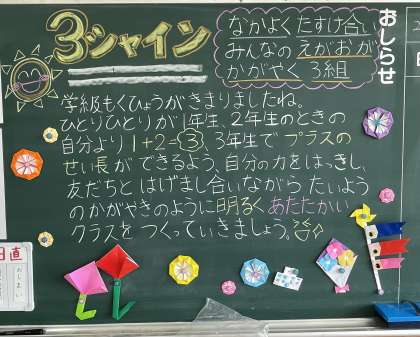 3シャイン
なかよく たすけ合い
みんなの えがおが
かがやく 3組
おしらせ
学級もくひょうがきまりましたね。
ひとりひとりが1年生、2年生のときの
自分より 1+2=③、3年生で プラスの
せい長 ができるよう、自分の力をはっきし、
友だちと はげまし合いながら たいよう
のかがやきのように明るく あたたかい
クラスを つくっていきましょう。
日直